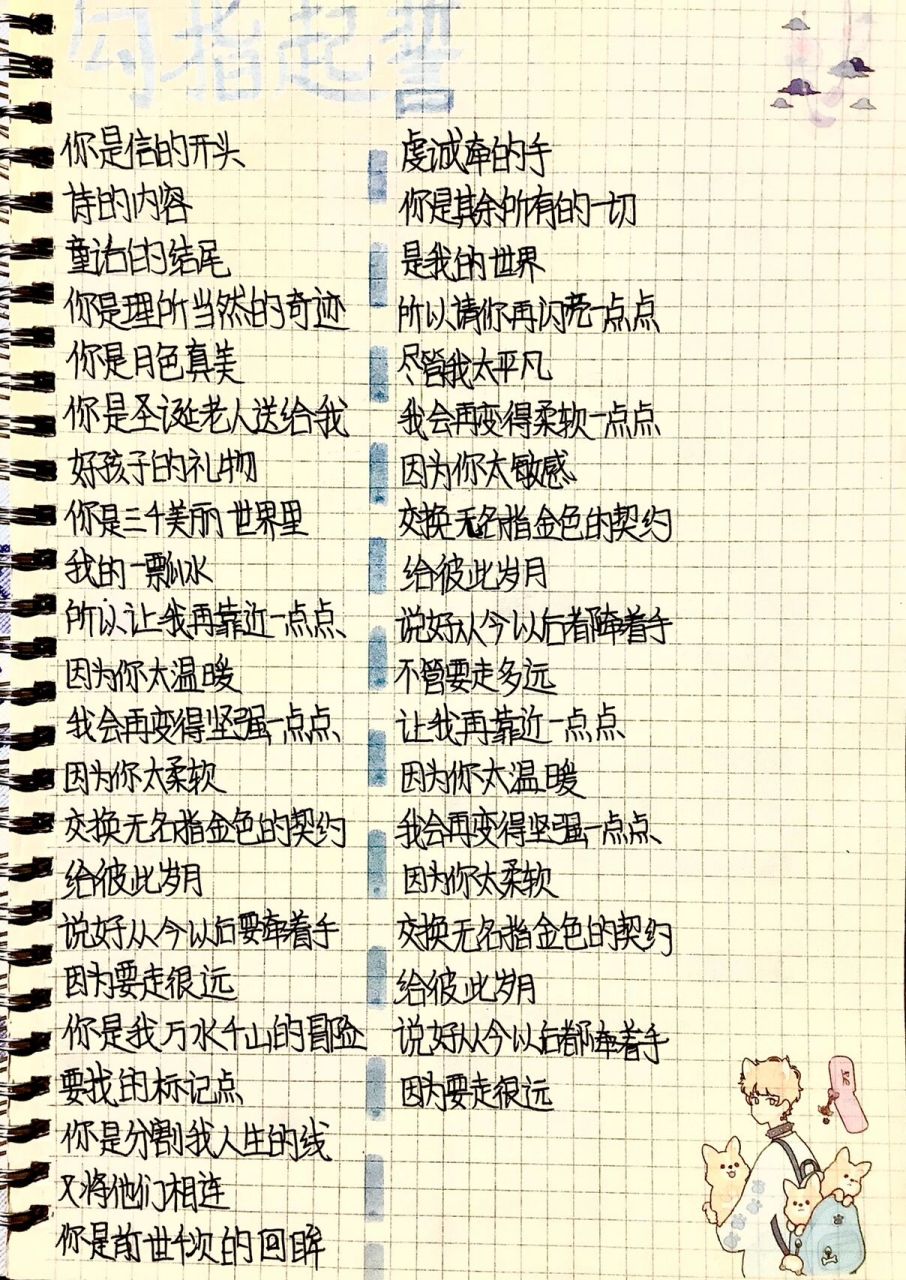 勾指起誓
你是信的开头
诗的内容
童话的结尾
你是理所当然的奇迹
你是月色真美
你是圣诞老人送给我
好孩子的礼物
你是三千美丽世界里
我的一瓢水
所以让我再靠近一点点
因为你太温暖
我会再变得坚强一点点
因为你太柔软
交换无名指金色的契约
给彼此岁月
说好从今以后要牵着手
因为要走很远
你是我万水千山的冒险
要找的标记点
你是分割我人生的线
又将他们相连
你是前世千次的回眸
虔诚牵的手
你是其余所有的一切
是我的世界
所以请你再闪亮一点点
尽管我太平凡
我会再变得柔软一点点
因为你太敏感
交换无名指金色的契约
给彼此岁月
说好从今以后都牵着手
不管要走多远
让我再靠近一点点
因为你太温暖
我会再变得坚强一点点
因为你太柔软
交换无名指金色的契约
给彼此岁月
说好从今以后都牵着手
因为要走很远